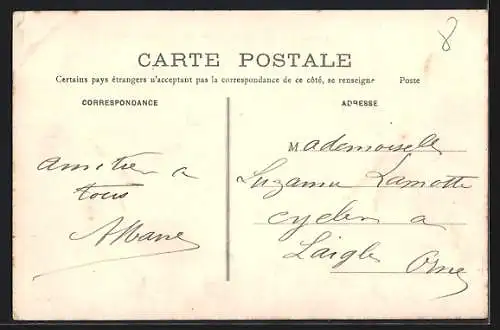 8
CARTE POSTALE
Certains pays étrangers n'acceptant pas la correspondance de ce côté, se renseigne Poste
CORRESPONDANCE
ADRESSE
amitiés a
tous
Mademoiselle
Suzanne Lamotte
a
Laigle
Orne